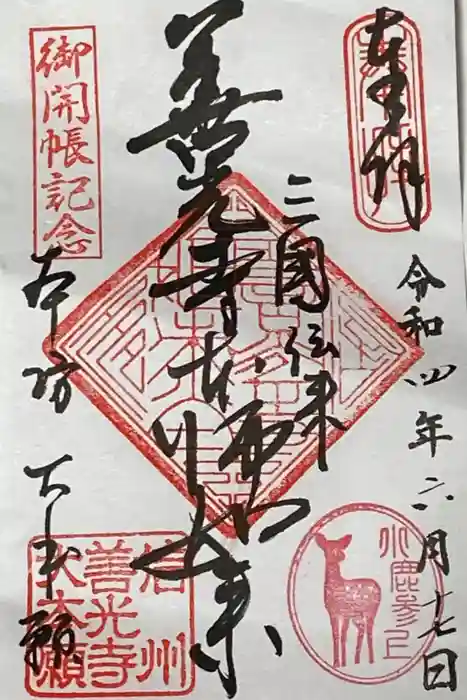 奉拝
令和四年六月十七日
三國伝来
善光寺本師如来
御開帳記念
本坊 大本願
信州
善光寺
大本願